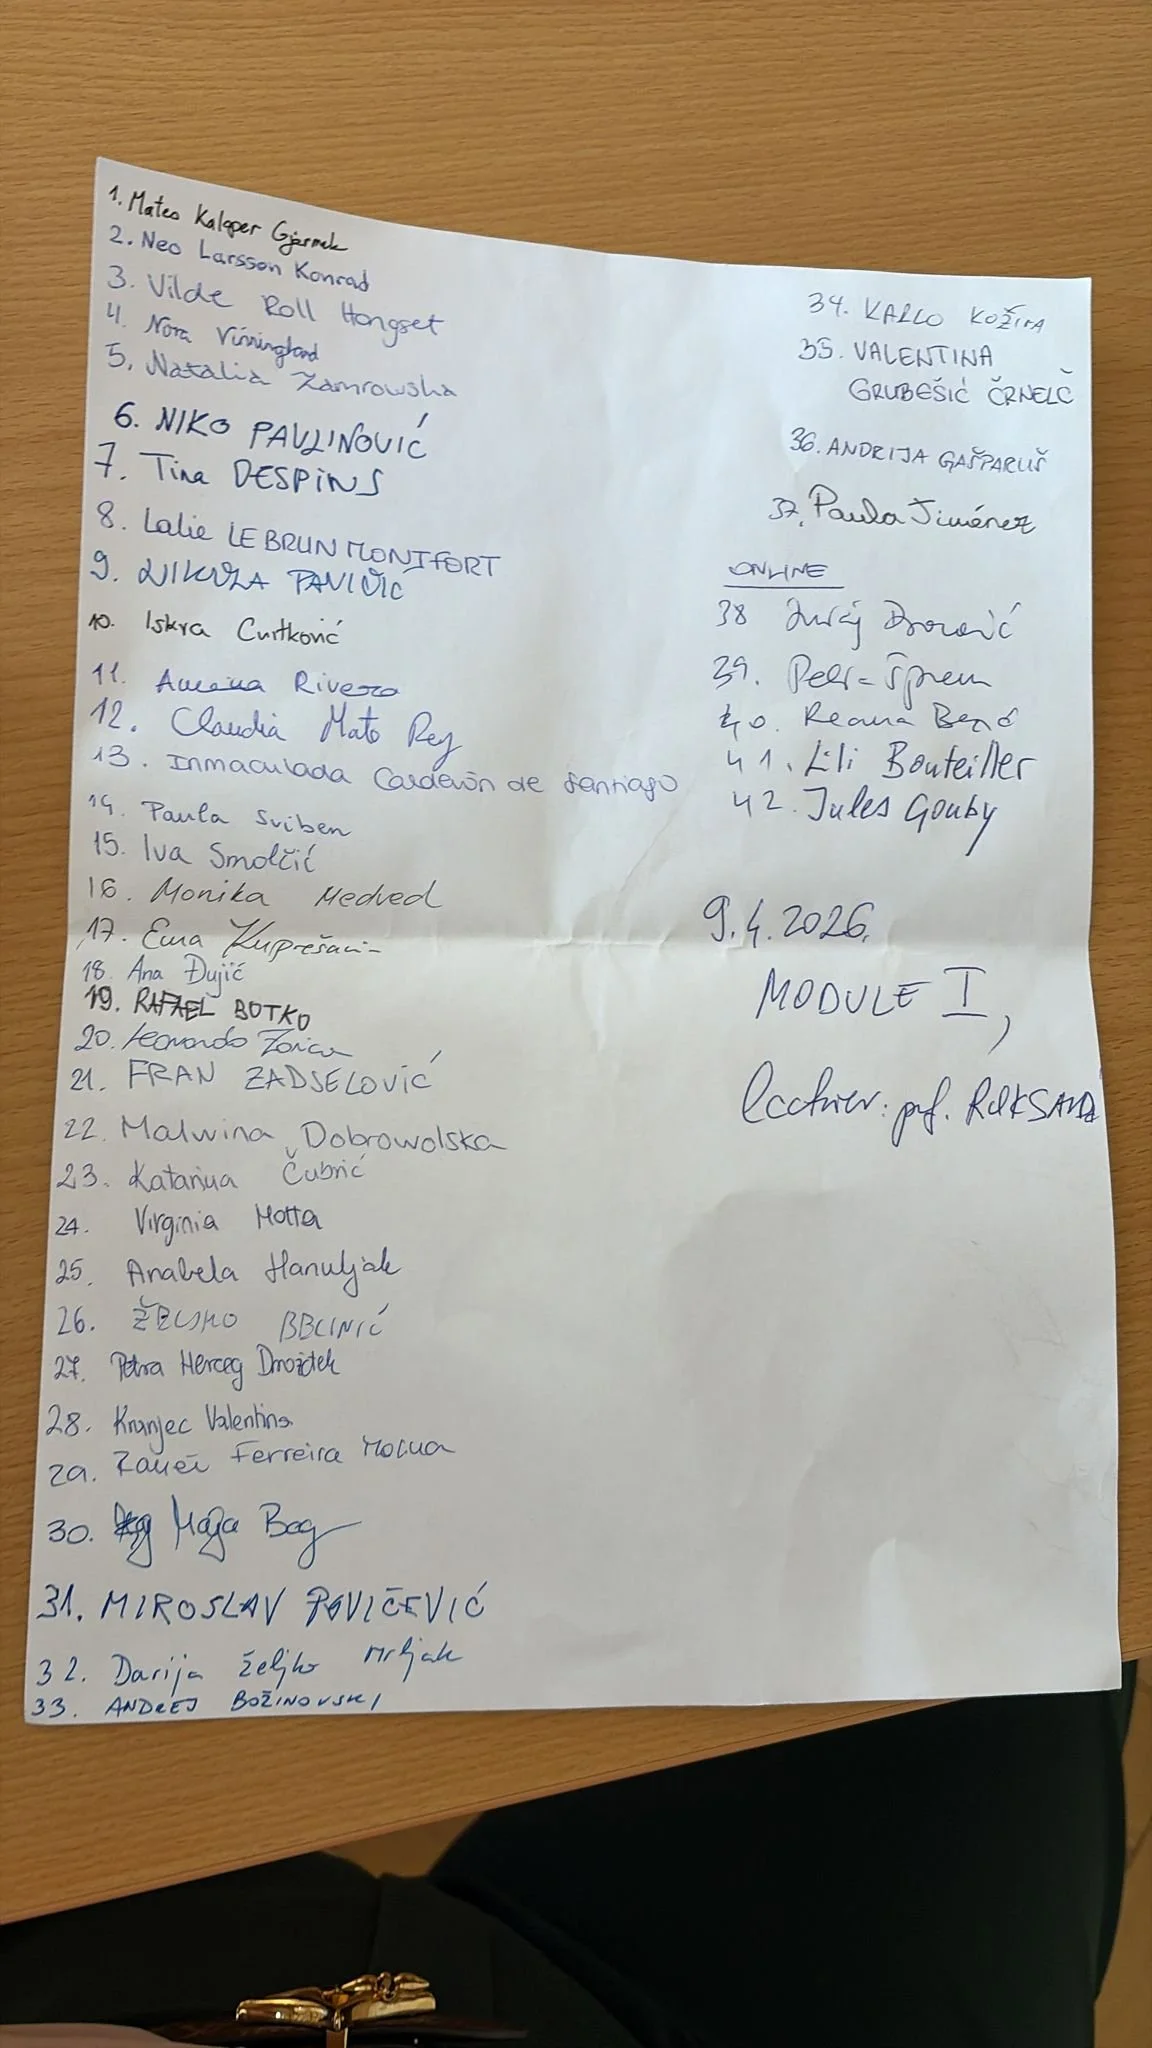 1. Mateo Kalaper Gjærmek
2. Neo Larsson Konrad
3. Vilde Roll Hongset
4. Nora
5. Natalia Zamrowska
6. NIKO PAVLINOVIĆ
7. Tina DESPINS
8. Lalie LEBRUN MONTFORT
9. NIKOLA PAVIČIĆ
10. Iskra Cvitković
11. Rivera
12. Claudia Mato Rey
13. Inmaculada Calderón de Santiago
14. Paula Sviben
15. Iva Smolčić
16. Monika Medved
17. Ema
18. Ana Đujić
19. RAFAEL BOTKO
20. Leonardo
21. FRAN ZADSELOVIĆ
22. Malwina Dobrowolska
23. Katarina Čubrić
24. Virginia Motta
25. Anabela Hanuljak
26.
27. Petra Herceg
28. Kranjec Valentina
29. Ferreira
30. Maja Bog
31. MIROSLAV POVIČEVIĆ
32. Darija Željko Mrljak
33. ANDREJ BOŽINOVSKI
34. KARLO KOŽINA
35. VALENTINA
GRUBEŠIĆ ČRNELČ
36. ANDRIJA GAŠPARUŠ
37. Paula Jiménez
ONLINE
38 Juraj
39. Šprem
40.
41. Lili Bouteiller
42. Jules Gouby
9.4.2026.
MODULE I,
lecturer: prof. ROKSANDA